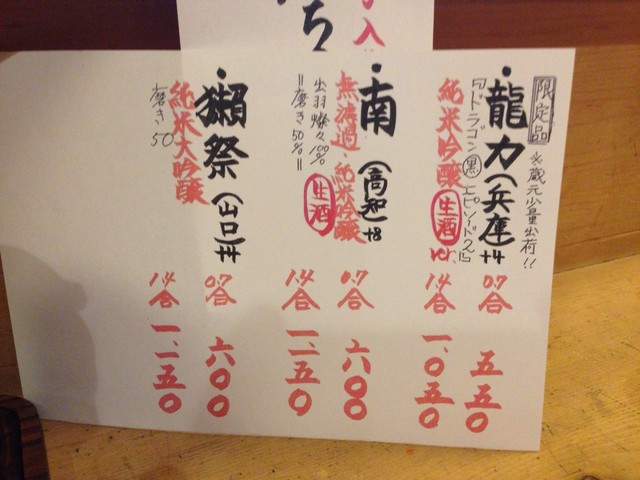 限定品
※蔵元少量出荷!!
・龍力(兵庫)+4
『ドラゴン黒エピソード2』
純米吟醸 生酒 ver.
0.7合 五五0
1.4合 一、0五0
・南(高知)+8
無濾過・純米吟醸
生酒
出羽燦々100%
=磨き50%=
0.7合 六00
1.4合 一、一五0
・獺祭(山口)
純米大吟醸
磨き50
0.7合 六00
1.4合 一、一五0